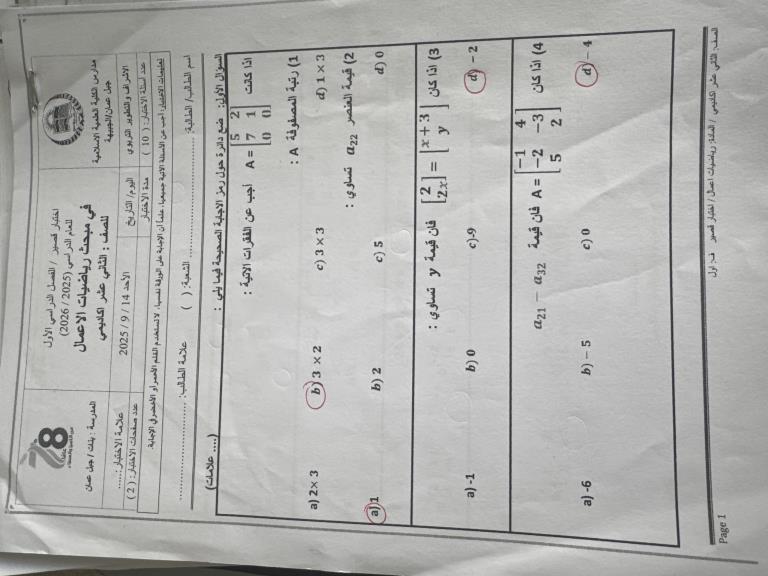 مدارس الكلية العلمية الاسلامية
جبل عمان/الجبيهة
الاشراف والتطوير التربوي
اختبار قصير / الفصل الدراسي الأول
للعام الدراسي (2025 / 2026)
في مبحث رياضيات الاعمال
للصف : الثاني عشر اكاديمي
78
المدرسة : بنات / جبل عمان
اليوم/ التاريخ
الأحد 14 / 9 / 2025
علامة الاختبار: ......
عدد أسئلة الاختبار: ( 10 )
مدة الاختبار
عدد صفحات الاختبار: ( 2 )
تعليمات الاختبار: أجب عن الأسئلة الآتية جميعها، علماً أن الإجابة على الورقة نفسها، لا تستخدم القلم الأحمر أو الأخضر في الإجابة.
اسم الطالب/ الطالبة: ........................ الشعبة: ( ) علامة الطالب: ........................
السؤال الأول: ضع دائرة حول رمز الاجابة الصحيحة فيما يلي : (.... علامات)
اذا كانت A = [5 2; 7 1; 0 0] أجب عن الفقرات الآتية :
1) رتبة المصفوفة A :
a) 2× 3 b) 3 × 2 c) 3 × 3 d) 1 × 3
2) قيمة العنصر a22 تساوي :
a) 1 b) 2 c) 5 d) 0
3) اذا كان [2; 2x] = [x + 3; y] فان قيمة y تساوي :
a) -1 b) 0 c) -9 d) - 2
4) اذا كان A = [-1 4; -2 -3; 5 2] فان قيمة a21 − a32
a) -6 b) - 5 c) 0 d) - 4
الصف: الثاني عشر اكاديمي / المادة: رياضيات اعمال / اختبار قصير ف: اول
Page 1